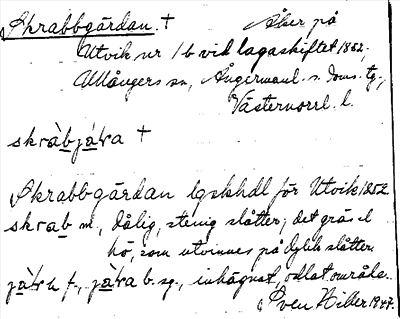 Skrabbgärdan. + Åker på
Utvik nr 1 b vid lagaskiftet 1852,
Ullångers sn, Ångermanl. s. doms. tg.,
Västernorrl. l.
skràbjá̀ra +
Skrabbgärdan lgskhdl för Utvik 1852
skrab m., dålig, stenig slåtter; det gräs el
hö, som utvinnes på dylik slåtter.
f., b. sg., inhägnat, odlat område.
Sven Hiller 1947.